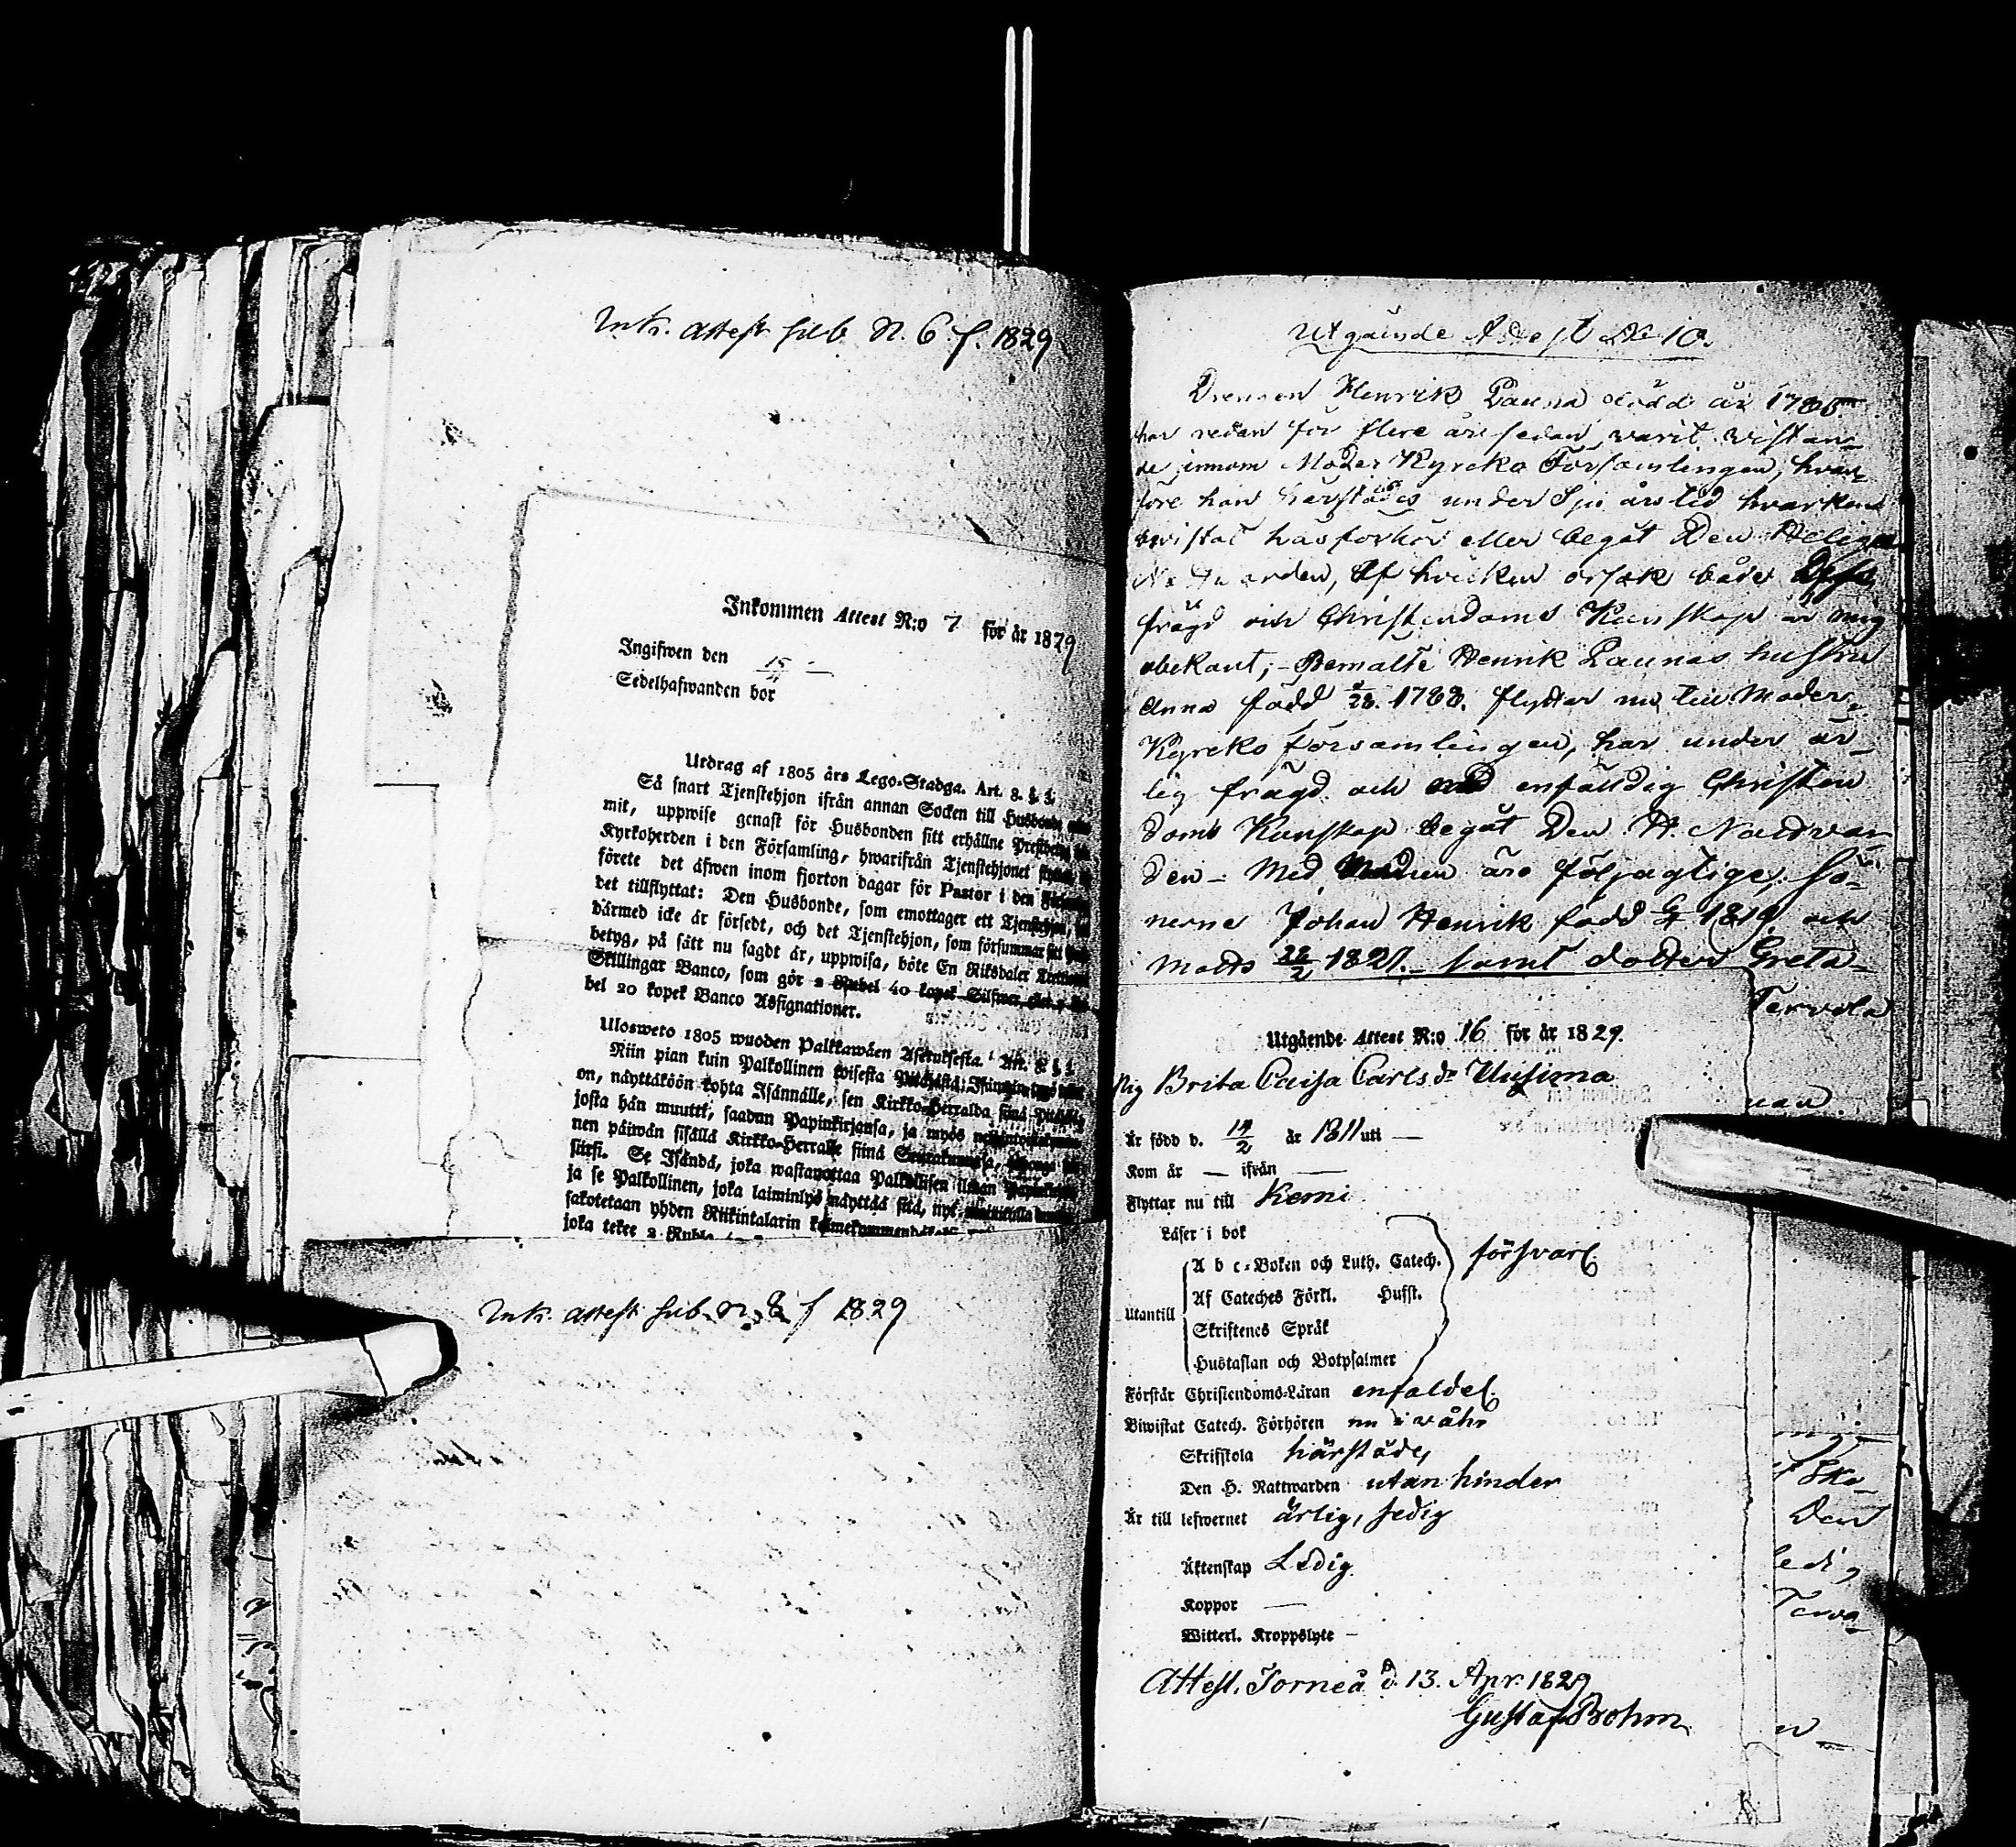 Ink. attest sub N. 6 f. 1829
Inkommen Attest N:o 7 för år 1829
Ingifwen den 15
Sedelhafwanden bor
Utdrag af 1805 års Lego-Stadga. Art. 8. §. 3.
Så snart Tjenstehjon ifrån annan Socken till Husbonde
mit, uppwise genast för Husbonden sitt erhållne Prestbetyg
Kyrkoherden i den Församling, hwarifrån Tjenstehjonet
förete det äfwen inom fjorton dagar för Pastor i den
det tillflyttat: Den Husbonde, som emottager ett Tjenstehjon,
därmed icke är försedt, och det Tjenstehjon, som försummar sitt
betyg, på sätt nu sagdt är, uppwisa, böte En Riksdaler
Skillingar Banco, som gör 2 Rubel 40 kopek Silfwer,
bel 20 kopek Banco Assignationer.
Ulosweto 1805 wuoden Palkkawäen Asetuksesta. Art. 8. §. 3.
Niin pian kuin Palkollinen toisesta Pitäjästä Isännän
on, näyttäköön kohta Isännälle, sen Kirkko-Herralda siinä
josta hän muutti, saadun Papinkirjansa, ja myös
nen päiwän sisällä Kirkko-Herralle siinä Seurakunnasa,
siirsi. Se Isändä, joka wastanottaa Palkollisen ilman
ja se Palkollinen, joka laiminlyö näyttää sitä, nyt
sakotetaan yhden Riikintalarin
joka tekee 2 Rubla
Ink. attest sub n. 8 f 1829
Utgående Attest No 10.
Drengen Henrik Launa född år 1785
har redan för flere år sedan, varit vistan-
de innom Moder Kyrcko Församlingen, hvar-
före han härstädes under Sju års tid hvarken
bevistat husförhör eller begåt Den Heliga
Nattvarden, Af hvicken orsak både
frägd och Christendoms Kunskap är mig
obekant; Bemälte Henrik Launas hustru
Anna född 28. 1788. flyttar nu till Moder
Kyrcko församlingen, har under är-
lig frägd och enfalldig Christen
doms Kunskap begåt Den H. Nattvar
den - Med Modren äro följagtige, Sö-
nerne Johan Henrik född 1819 och
Matts 22/2 1827. samt dotter Greta
Tervola
Utgående Attest N:o 16 för år 1829.
Pig Brita Caisa Carls dr Uusima
Är född d. 14/2 år 1811 uti —
Kom år — ifrån —
Flyttar nu till Kemi
Läser i bok
A b c-Boken och Luth. Catech. försvarl.
Utantill Af Cateches Förkl. Hufst.
Skriftenes Språk
Hustaflan och Botpsalmer
Förstår Christendoms-Läran enfaldel.
Biwistat Catech. Förhören
Skriftskola härstädes
Den H. Nattwarden utan hinder
Är till lefwernet ärlig, sedig
Äktenskap Ledig
Koppor —
Witterl. Kroppslyte —
Attest. Torneå d. 13. Apr. 1829
Gustaf Bohm